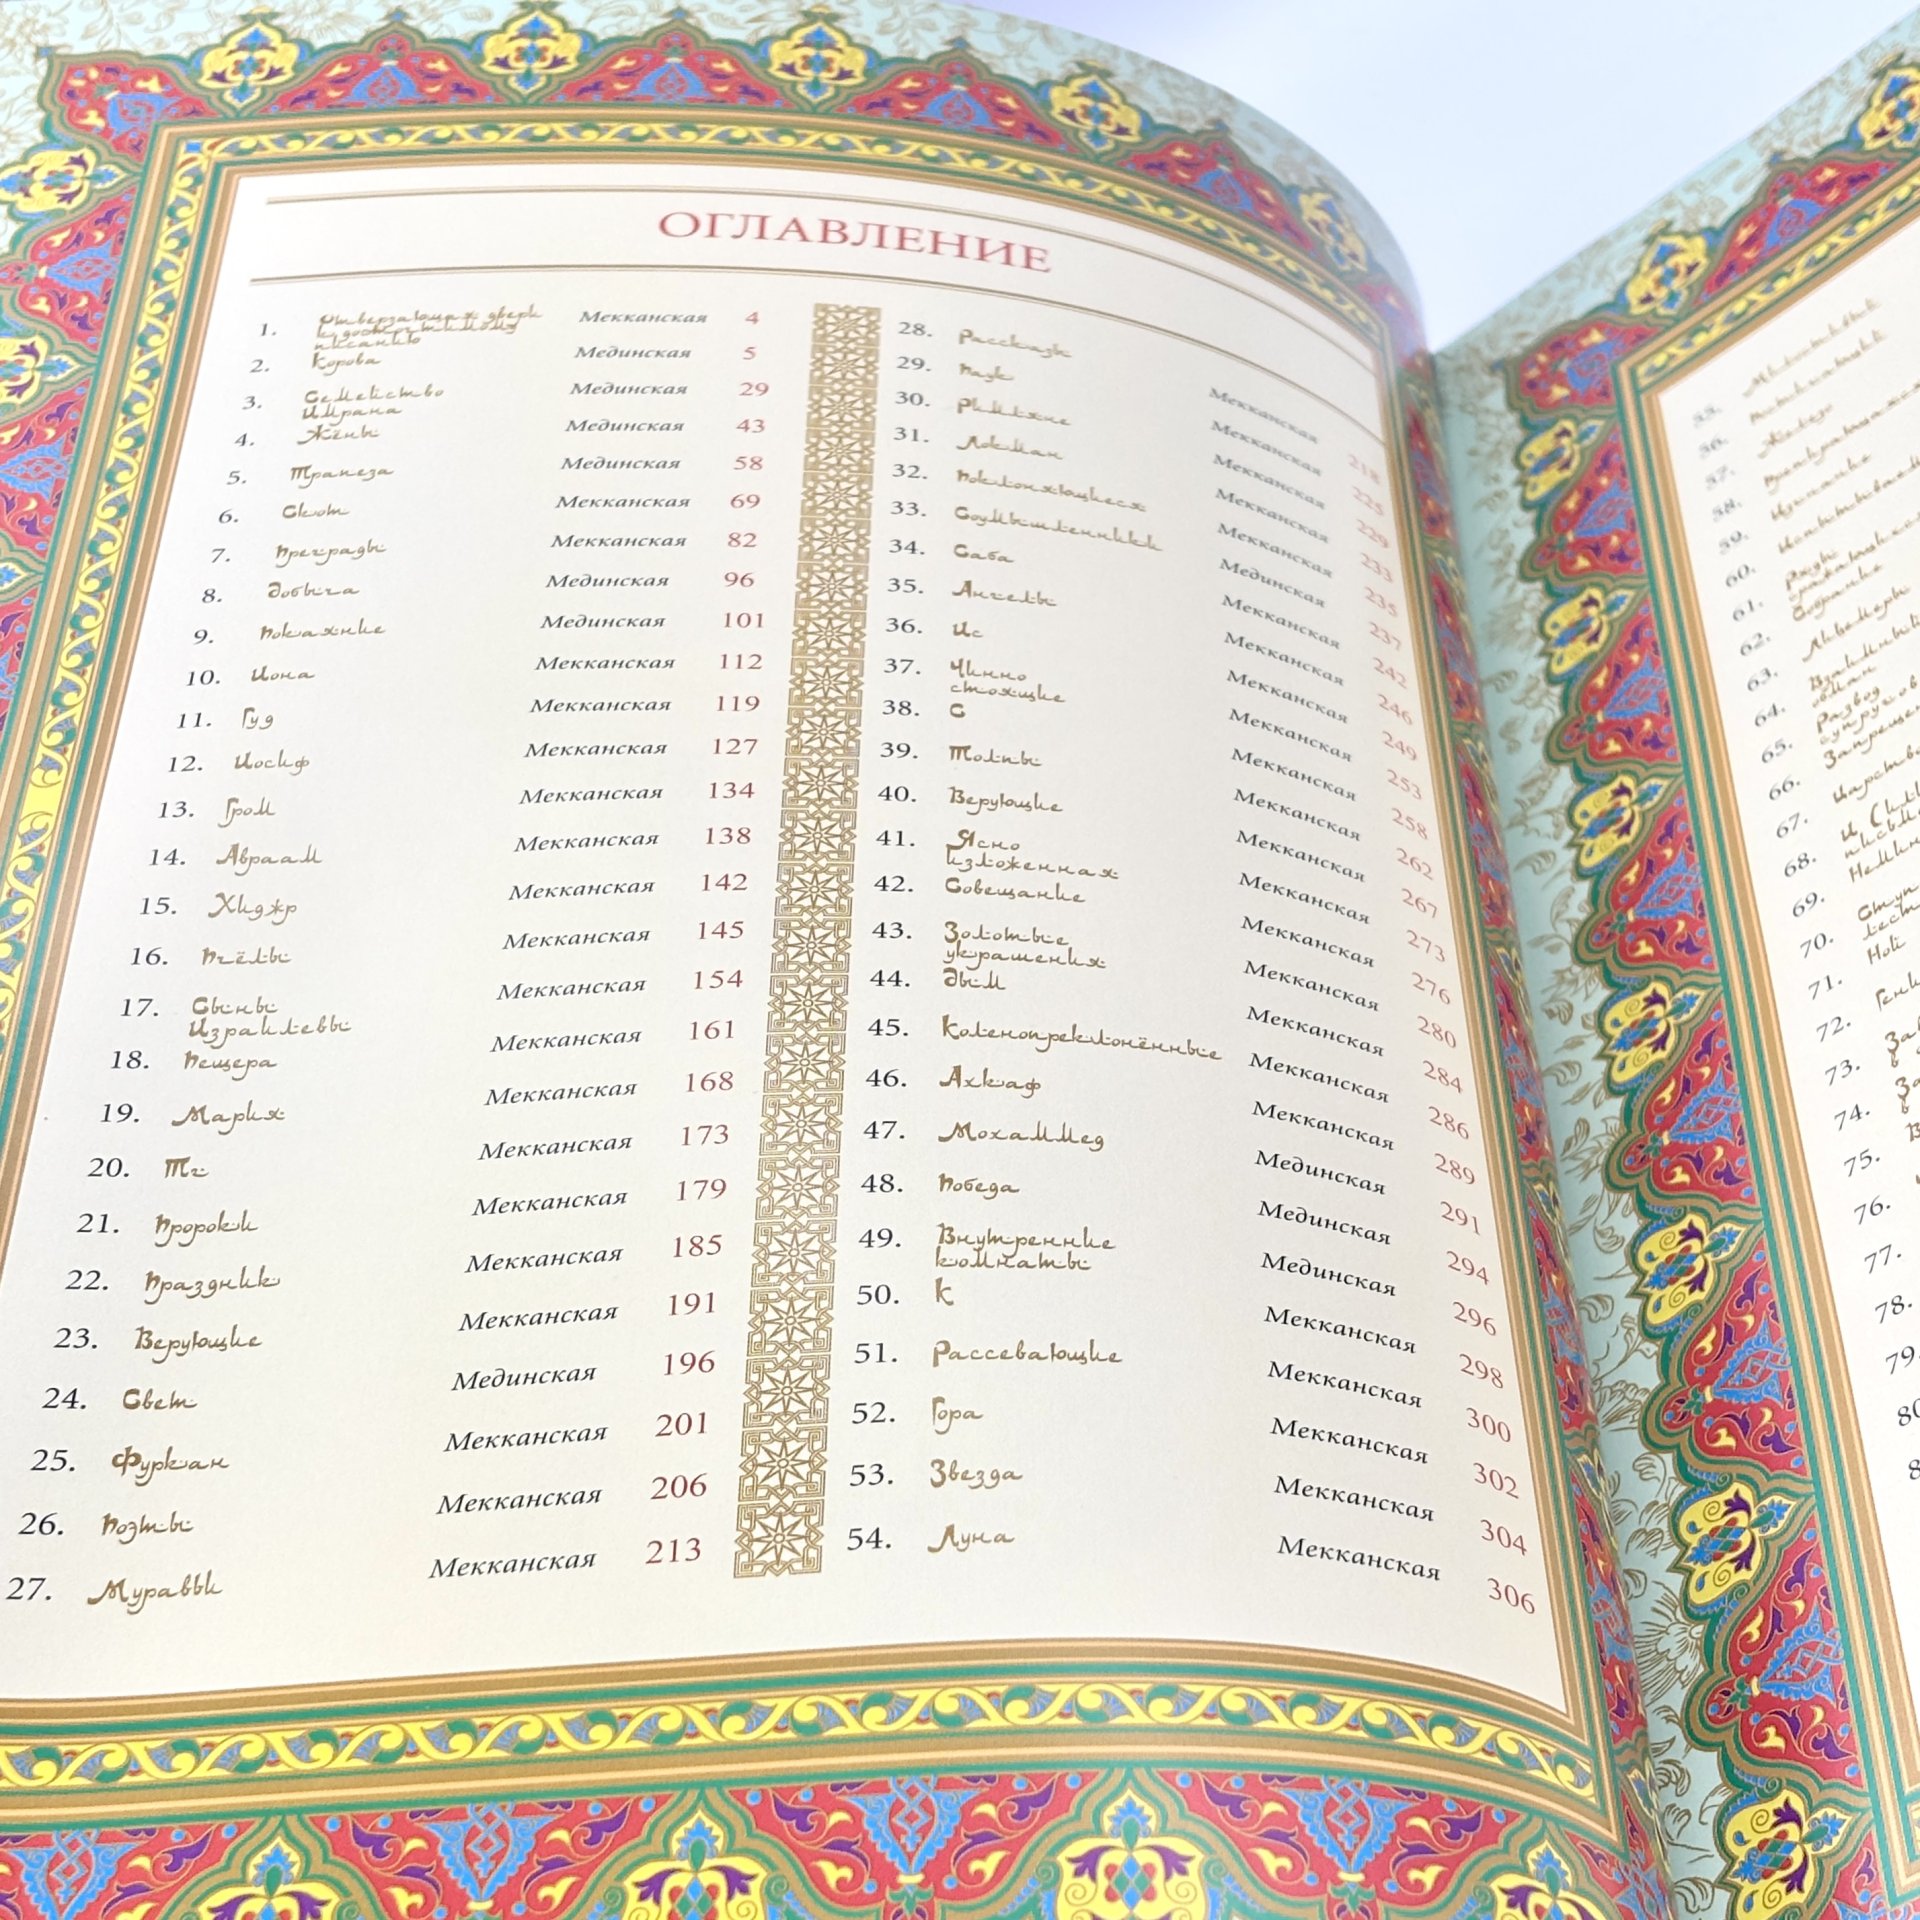 ОГЛАВЛЕНИЕ
1. Отверзающая двери
к досточтимому
писанию Мекканская 4
2. Корова Мединская 5
3. Семейство
Имрана Мединская 29
4. Жёны Мединская 43
5. Трапеза Мединская 58
6. Скот Мекканская 69
7. Преграды Мекканская 82
8. Добыча Мединская 96
9. Покаяние Мединская 101
10. Иона Мекканская 112
11. Гуд Мекканская 119
12. Иосиф Мекканская 127
13. Гром Мекканская 134
14. Авраам Мекканская 138
15. Хиджр Мекканская 142
16. Пчёлы Мекканская 145
17. Сыны
Израилевы Мекканская 154
18. Пещера Мекканская 161
19. Мария Мекканская 168
20. Тг Мекканская 173
21. Пророки Мекканская 179
22. Праздник Мекканская 185
23. Верующие Мекканская 191
24. Свет Мединская 196
25. Фуркан Мекканская 201
26. Поэты Мекканская 206
27. Муравьи Мекканская 213
28. Рассказы Мекканская 218
29. Паук Мекканская 225
30. Римляне Мекканская 229
31. Локман Мекканская 233
32. Поклоняющиеся Мекканская 235
33. Соумышленники Мединская 237
34. Саба Мекканская 242
35. Ангелы Мекканская 246
36. Ис Мекканская 249
37. Чинно
стоящие Мекканская 253
38. С Мекканская 258
39. Толпы Мекканская 262
40. Верующие Мекканская 267
41. Ясно
изложенная Мекканская 273
42. Совещание Мекканская 276
43. Золотые
украшения Мекканская 280
44. Дым Мекканская 284
45. Коленопреклонённые Мекканская 286
46. Ахкаф Мекканская 289
47. Мохаммед Мединская 291
48. Победа Мединская 294
49. Внутренние
комнаты Мединская 296
50. К Мекканская 298
51. Рассевающие Мекканская 300
52. Гора Мекканская 302
53. Звезда Мекканская 304
54. Луна Мекканская 306
55. Милостивый
56.
57. Железо
58.
59. Изгнание
60.
61.
62. Собрание
63.
64.
обман
65. Развод
66.
67.
68.
69.
70.
71.
72.
73.
74.
75.
76.
77.
78.
79.